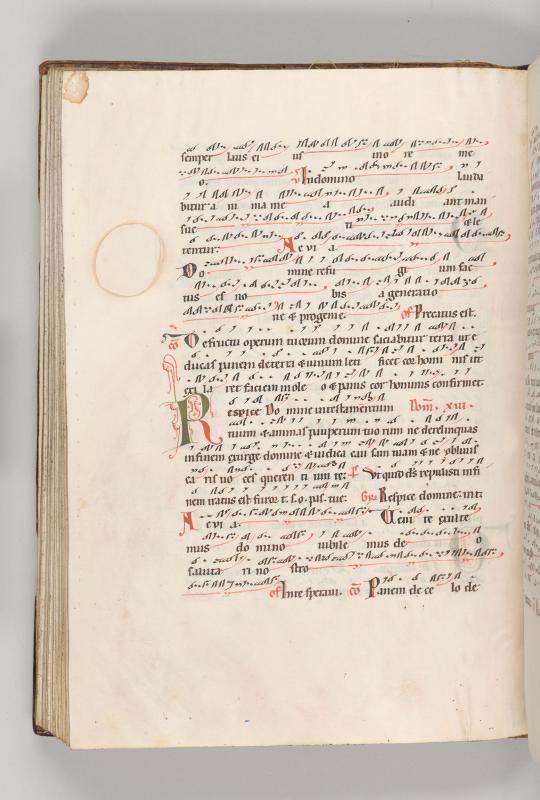 semper laus ei us in o re me
o. v Indomino lauda
bitur a ni ma me a audi ant man
sue ti
tentur. Ae v i a.
Do mine refu gi um fac
tus es no bis a generatio
ne & progenie. of Precatus est.
De fructu operum tuorum domine saciabitur terra ut e
ducas panem de terra & uinum leti ficet cor homi nis ut
exi la ret faciem in ole o & panis cor hominis confirmet.
Respice Do mine in testamentum Dom. xiii.
tuum & animas pauperum tuo rum ne derelinquas
infinem exurge domine & iudica cau sam tuam & ne obliuis
ca ris uo ces queren ti um te. ps Vt quid ds reppulisti infi
nem iratus est furor t. s. o. pas. tue. Gra Respice domine. int.
Ae v i a. Ueni te exulte
mus do mino iubile mus de o
saluta ri no stro
of In te speraui. co Panem de ce lo de